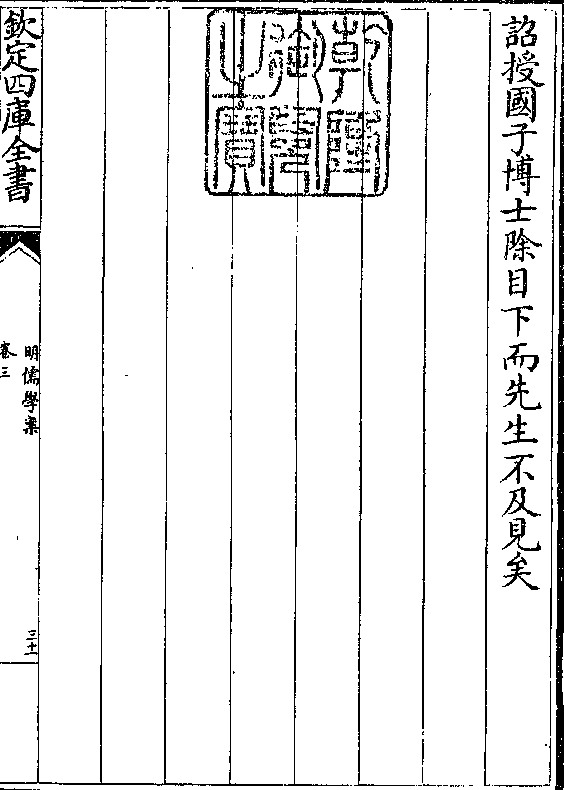 詔授國子博士除目下而先生不及見矣
乾隆
御覽
之寶
欽定四庫全書
明儒學案
卷三
三十一